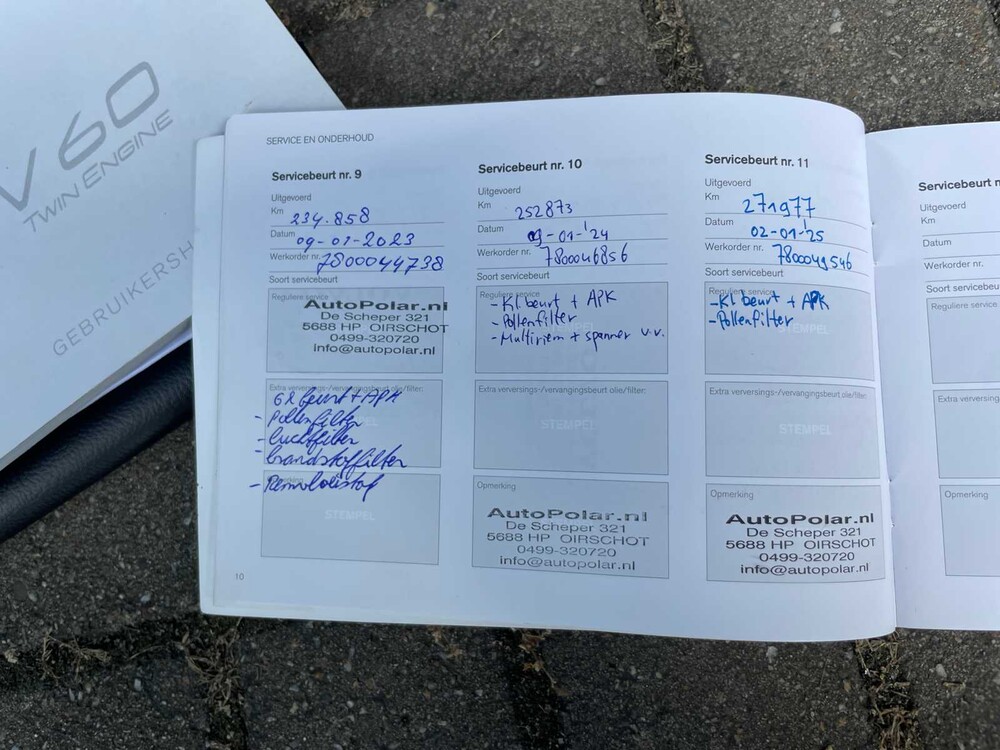 V60
TWIN ENGINE
GEBRUIKERSH
SERVICE EN ONDERHOUD
Servicebeurt nr. 9
Uitgevoerd
Km 234.858
Datum 09-01-2023
Werkorder nr. 7800044738
Soort servicebeurt
Reguliere service
AutoPolar.nl
De Scheper 321
5688 HP OIRSCHOT
0499-320720
info@autopolar.nl
Extra verversings-/vervangingsbeurt olie/filter:
GR beurt + APK
- Pollenfilter
- luchtfilter
- brandstoffilter
- Remvloeistof
STEMPEL
10
Servicebeurt nr. 10
Uitgevoerd
Km 252873
Datum 09-01-'24
Werkorder nr. 7800046856
Soort servicebeurt
Reguliere service
- Kl beurt + APK
- Pollenfilter
- Multiriem + spanner v.v.
Extra verversings-/vervangingsbeurt olie/filter:
STEMPEL
Opmerking
AutoPolar.nl
De Scheper 321
5688 HP OIRSCHOT
0499-320720
info@autopolar.nl
Servicebeurt nr. 11
Uitgevoerd
Km 271977
Datum 02-01-'25
Werkorder nr. 7800049546
Soort servicebeurt
Reguliere service
- Kl beurt + APK
- Pollenfilter
Extra verversings-/vervangingsbeurt olie/filter:
STEMPEL
Opmerking
AutoPolar.nl
De Scheper 321
5688 HP OIRSCHOT
0499-320720
info@autopolar.nl
Servicebeurt n
Uitgevoerd
Km
Datum
Werkorder nr.
Soort servicebeurt
Reguliere service
Extra verversing
Opmerking